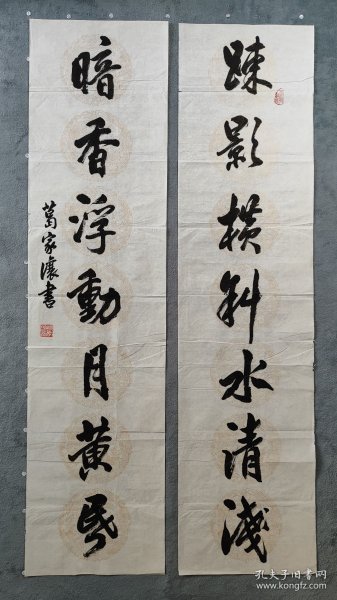 疎影横斜水清淺
暗香浮動月黄昏
葛家瀼書
孔夫子旧书网